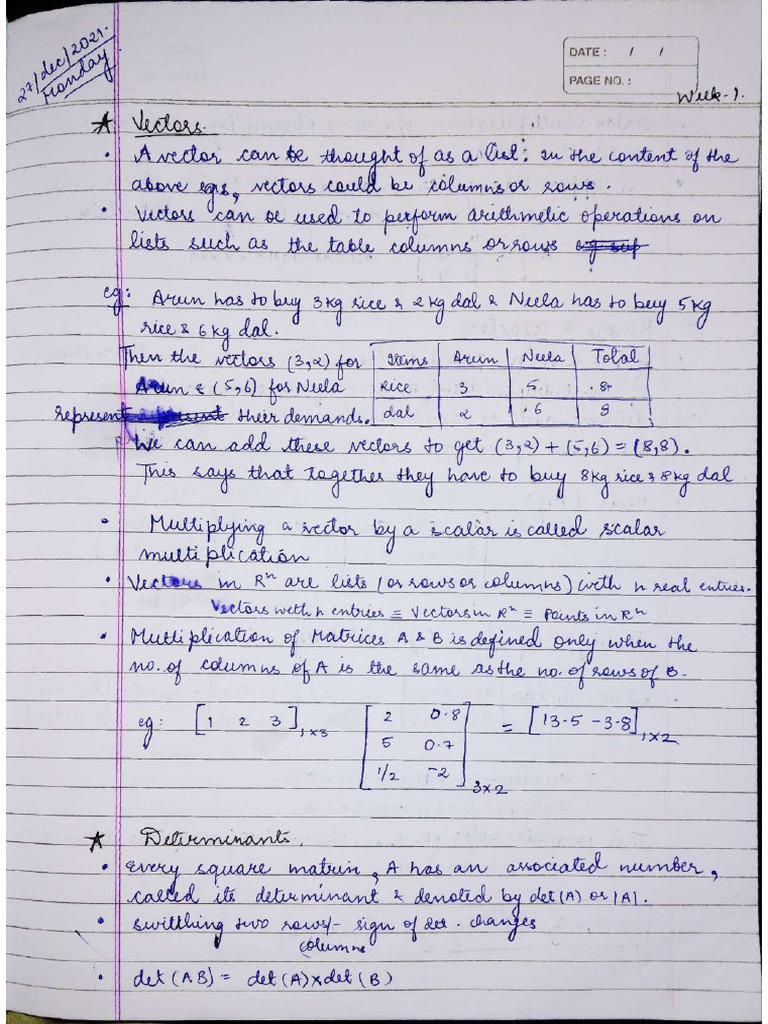 27/dec/2021.
Monday
DATE: / /
PAGE NO.:
Week-1.
★ Vectors.
• A vector can be thought of as a list: in the content of the
above egs, vectors could be columns or rows.
• Vectors can be used to perform arithmetic operations on
lists such as the table columns or rows
eg: Arun has to buy 3kg rice & 2kg dal & Neela has to buy 5kg
rice & 6kg dal.
Then the vectors (3,2) for
Arun & (5,6) for Neela
represent their demands.
Items Arun Neela Total
Rice 3 5 8
dal 2 6 8
We can add these vectors to get (3,2) + (5,6) = (8,8).
This says that together they have to buy 8kg rice & 8kg dal
• Multiplying a vector by a scalar is called scalar
multiplication
• Vectors in Rⁿ are lists (or rows or columns) with n real entries.
Vectors with n entries ≡ Vectors in Rⁿ ≡ Points in Rⁿ
• Multiplication of Matrices A & B is defined only when the
no. of columns of A is the same as the no. of rows of B.
eg: [1 2 3]₁ₓ₃ [2 0.8
5 0.7
1/2 -2]₃ₓ₂ = [13.5 -3.8]₁ₓ₂
★ Determinants.
• Every square matrix, A has an associated number,
called its determinant & denoted by det(A) or |A|.
• switching two rows/- sign of det. changes
columns
• det(AB) = det(A)×det(B)